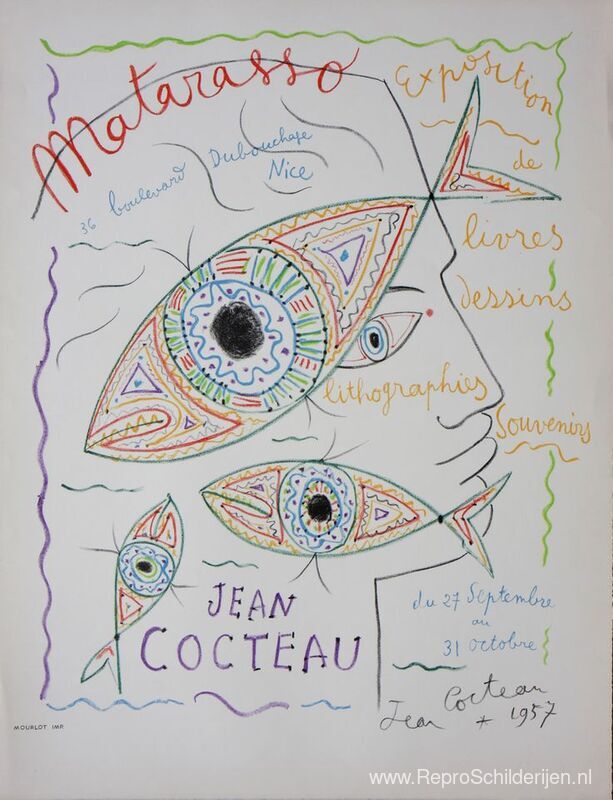 Matarasso
Exposition
36 boulevard Dubouchage
Nice
de
livres
dessins
lithographies
Souvenirs
JEAN
COCTEAU
du 27 Septembre
au
31 octobre
Jean Cocteau
* 1957
MOURLOT IMP.
www.ReproSchilderijen.nl